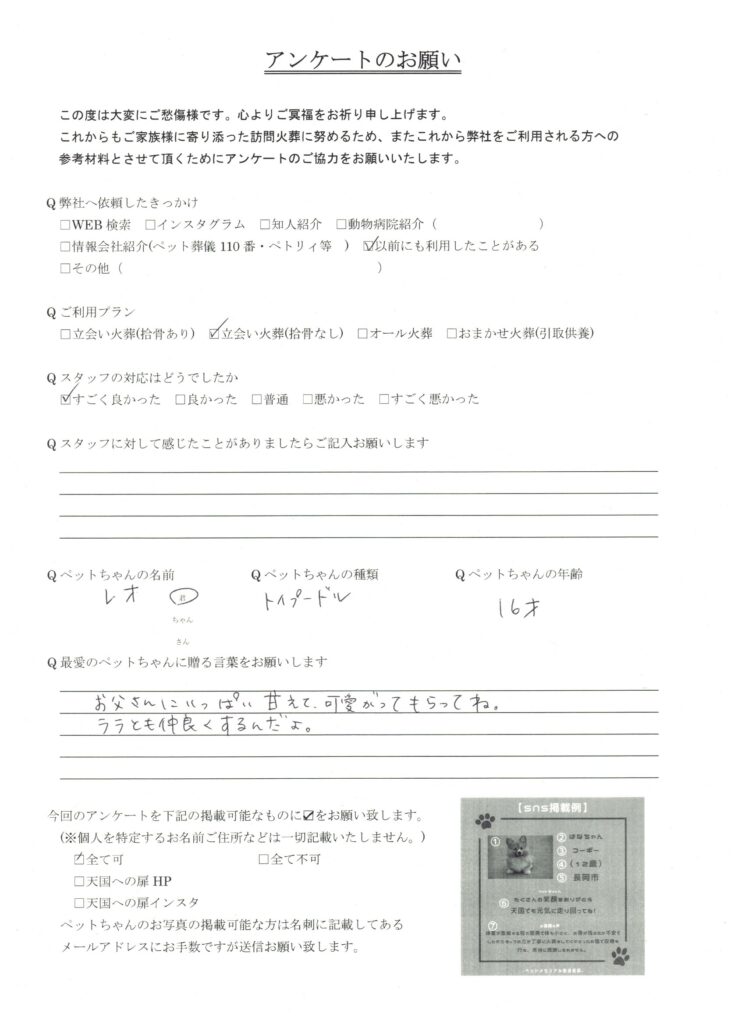 アンケートのお願い
この度は大変にご愁傷様です。心よりご冥福をお祈り申し上げます。
これからもご家族様に寄り添った訪問火葬に努めるため、またこれから弊社をご利用される方への
参考材料とさせて頂くためにアンケートのご協力をお願いいたします。
Q 弊社へ依頼したきっかけ
□WEB 検索 □インスタグラム □知人紹介 □動物病院紹介（ ）
□情報会社紹介(ペット葬儀 110 番・ペトリィ等 ) ☑以前にも利用したことがある
□その他（ ）
Q ご利用プラン
□立会い火葬(拾骨あり) ☑立会い火葬(拾骨なし) □オール火葬 □おまかせ火葬(引取供養)
Q スタッフの対応はどうでしたか
☑すごく良かった □良かった □普通 □悪かった □すごく悪かった
Q スタッフに対して感じたことがありましたらご記入お願いします
Q ペットちゃんの名前 Q ペットちゃんの種類 Q ペットちゃんの年齢
レオ 君 トイプードル 16才
ちゃん
さん
Q 最愛のペットちゃんに贈る言葉をお願いします
お父さんにいっぱい甘えて、可愛がってもらってね。
ララとも仲良くするんだよ。
今回のアンケートを下記の掲載可能なものに☑をお願い致します。
(※個人を特定するお名前ご住所などは一切記載いたしません。)
☑全て可 □全て不可
□天国への扉 HP
□天国への扉インスタ
ペットちゃんのお写真の掲載可能な方は名刺に記載してある
メールアドレスにお手数ですが送信お願い致します。
【sns掲載例】
① ② はなちゃん
③ コーギー
④ （12歳）
⑤ 長岡市
⑥ たくさんの笑顔をありがとう
天国でも元気に走り回ってね！
⑦